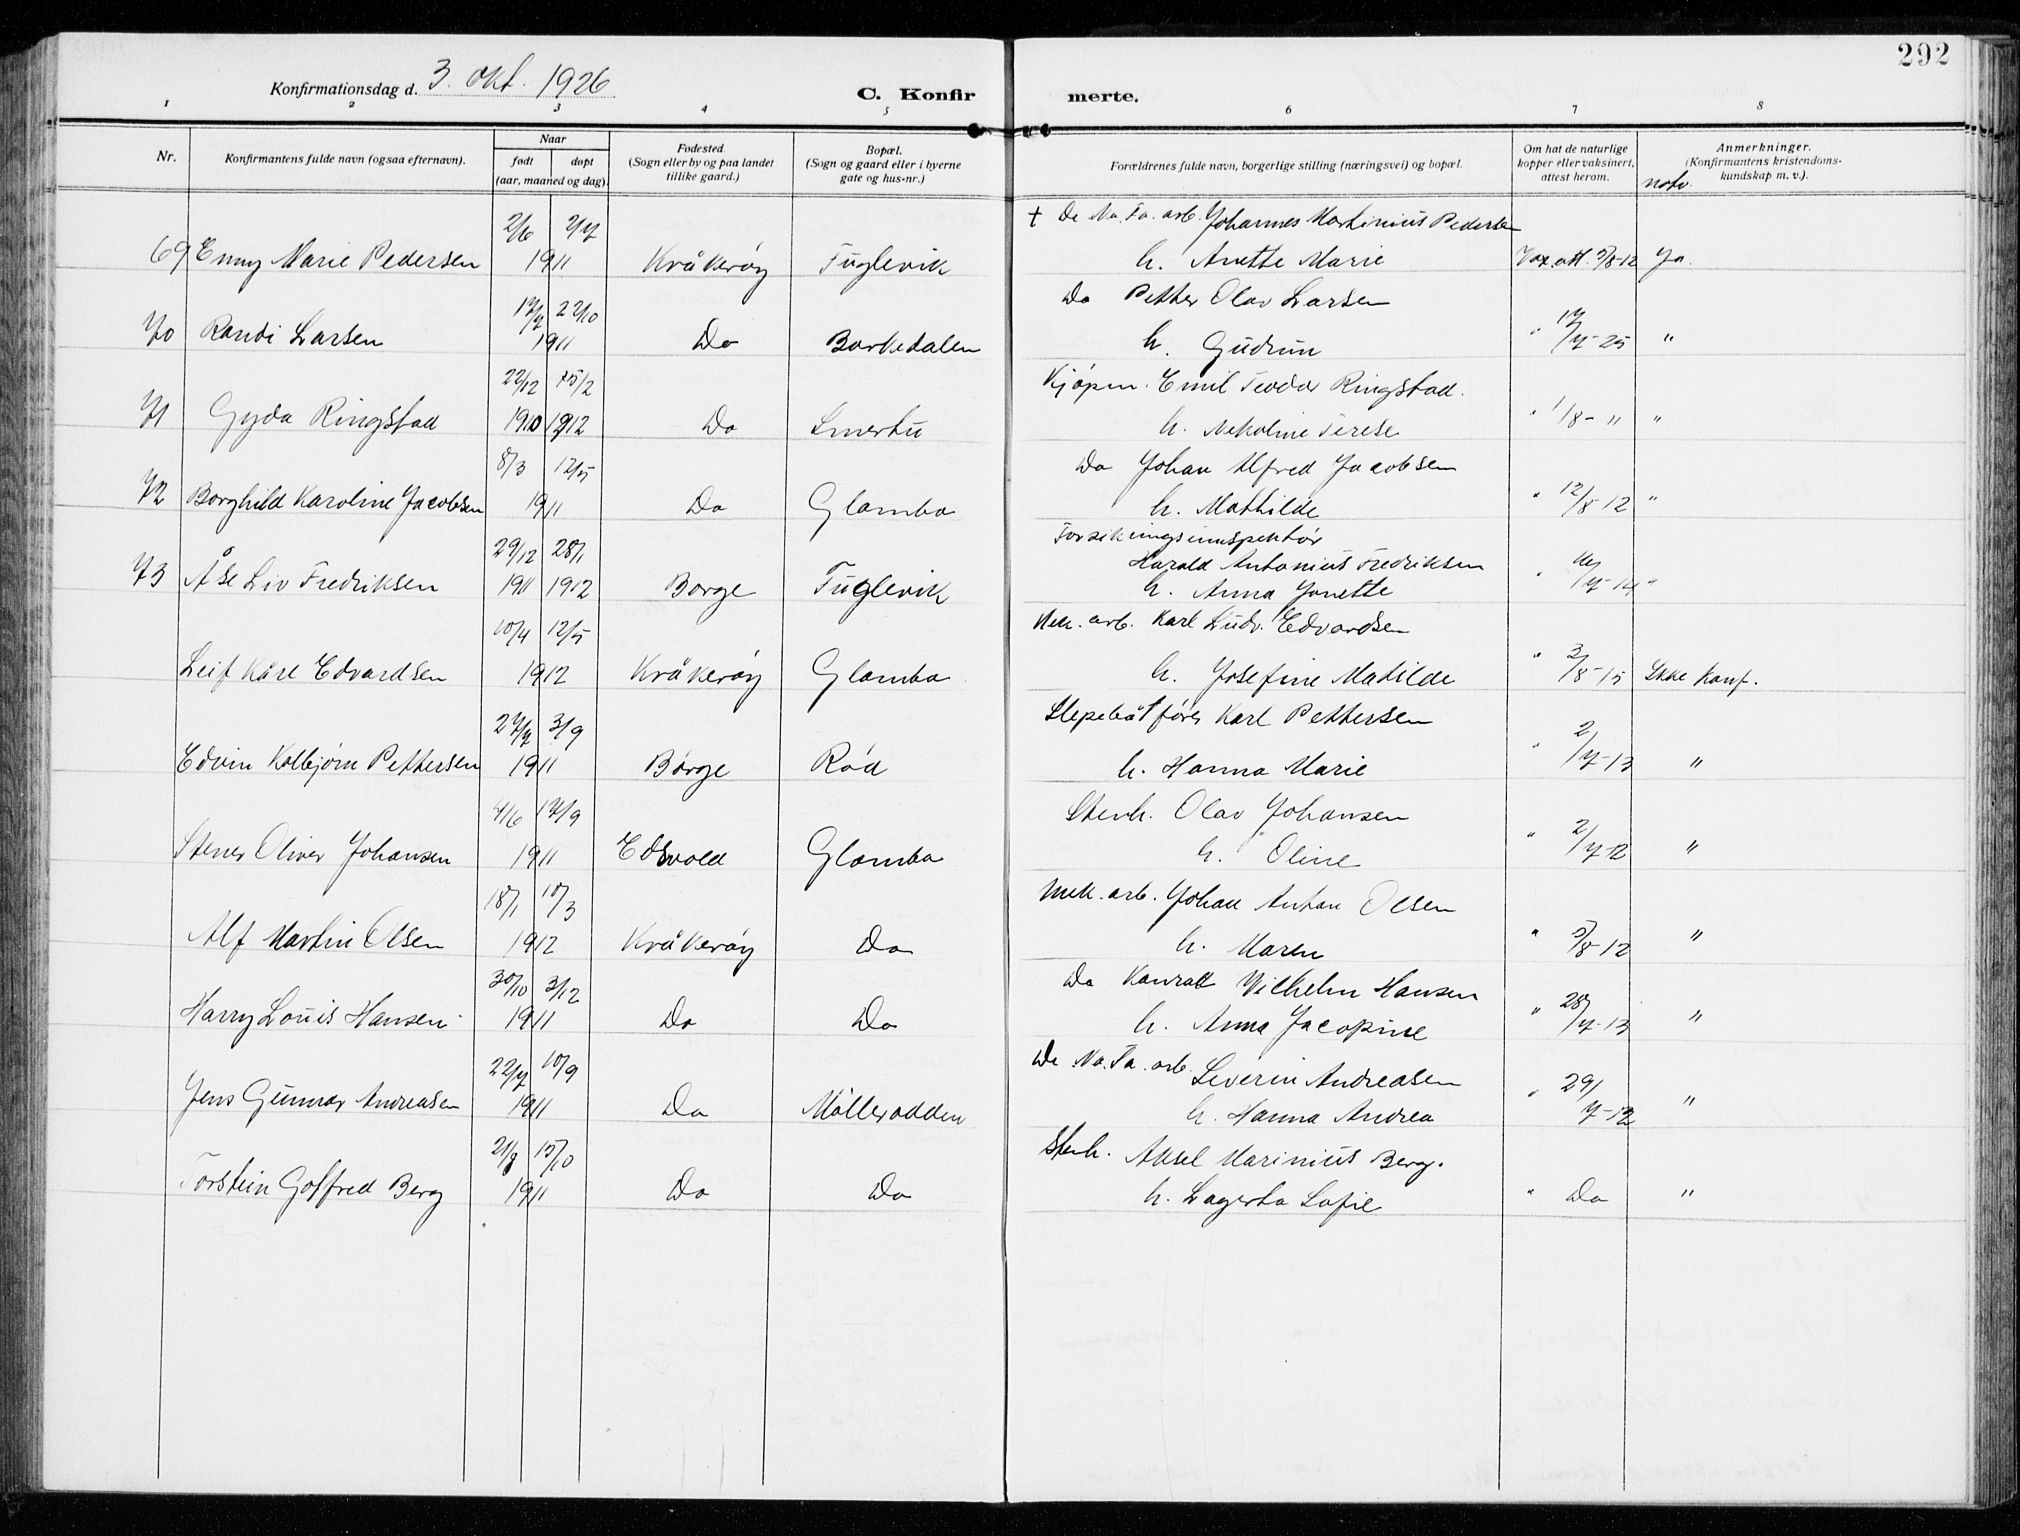 292
Konfirmationsdag d. 3. okt. 1926
C. Konfir merte.
1 2 3 4 5 6 7 8
Nr.
Konfirmantens fulde navn (ogsaa efternavn).
Naar
født døpt
(aar, maaned og dag).
Fødested.
(Sogn eller by og paa landet
tillike gaard.)
Bopæl.
(Sogn og gaard eller i byerne
gate og hus-nr.)
Forældrenes fulde navn, borgerlige stilling (næringsvei) og bopæl.
Om hat de naturlige
kopper eller vaksinert,
attest herom.
Anmerkninger.
(Konfirmantens kristendoms-
kundskap m. v.).
notv.
2/6 2/7 † De No. Fa. arb. Johannes Martinius Pedersen
69 Enny Marie Pedersen 1911 Kråkerøy Fuglevik h. Anette Marie Vax. att. 5/8-12 Ja.
17/7 22/10 Do Petter Olav Larsen
70 Randi Larsen 1911 Do Barkedalen h. Gudrun " 17/7-25 "
22/12 15/2 Kjøpm. Emil Teodor Ringstad.
71 Gyda Ringstad 1910 1912 Do Smertu h. Nekoline Terese " 1/8- " "
8/3 12/5 Do Johan Alfred Jacobsen
72 Borghild Karoline Jacobsen 1911 Do Glomba h. Mathilde " 12/8-12 "
29/12 28/1 Forsikringsinnspektør
Harald Antonius Fredriksen
73 Åse Liv Fredriksen 1911 1912 Borge Fuglevik h. Anna Jonette " /7-14 "
10/4 12/5 Mek. arb. Karl Ludv. Edvardsen
Leif Kåre Edvardsen 1912 Kråkerøy Glomba h. Josefine Matilde " 3/8-15 Ikke konf.
27/7 3/9 Slepebåtfører Karl Pettersen
Edvin Kolbjørn Pettersen 1911 Borge Rød h. Hanna Marie " 2/7-13 "
4/6 17/9 Stenh. Olav Johansen
Stener Oliver Johansen 1911 Edsvold Glomba h. Oline " 2/7-12 "
18/1 10/3 Mek. arb. Johan Anton Olsen
Alf Martin Olsen 1912 Kråkerøy Do h. Maren " 5/8-12 "
30/10 3/12 Do Konrad Vilhelm Hansen
Harry Louis Hansen 1911 Do Do h. Anna Jacopine " 28/7-13 "
22/7 10/9 De No. Fa. arb. Severin Andreasen
Jens Gunnar Andreasen 1911 Do Møllerodden h. Hanna Andrea " 29/7-12 "
21/8 15/10 Stenh. Aksel Marinius Berg.
Torstein Gotfred Berg 1911 Do Do h. Lagerta Sofie " Do "